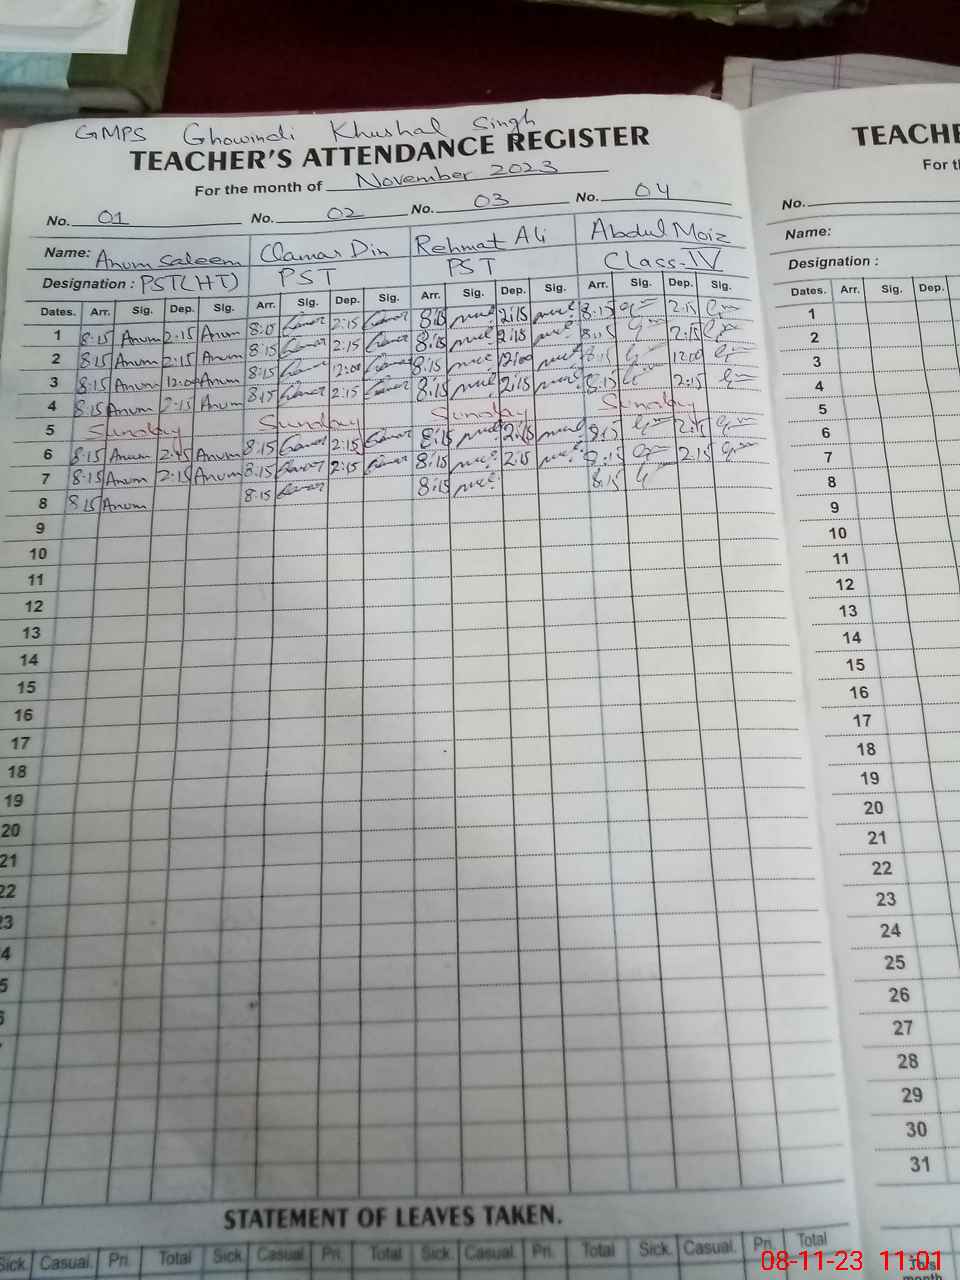 GMPS Ghowindi Khushal Singh
TEACHER'S ATTENDANCE REGISTER
For the month of November 2023
No. 01 No. 02 No. 03 No. 04
Name: Anum Saleem Qamar Din Rehmat Ali Abdul Moiz
Designation : PST(HT) PST PST Class-IV
Dates. Arr. Sig. Dep. Sig. Arr. Sig. Dep. Sig. Arr. Sig. Dep. Sig. Arr. Sig. Dep. Sig.
1 8:15 Anum 2:15 Anum 2:15 8:15 2:15 8:15 2:15
2 8:15 Anum 2:15 Anum 8:15 2:15 8:15 2:15 8:15 2:15
3 8:15 Anum 12:00 Anum 8:15 12:00 8:15 12:00 8:15 12:00
4 8:15 Anum 2:15 Anum 8:15 2:15 8:15 2:15 8:15 2:15
5 Sunday Sunday Sunday Sunday
6 8:15 Anum 2:15 Anum 8:15 2:15 8:15 2:15 8:15 2:15
7 8:15 Anum 2:15 Anum 8:15 2:15 8:15 2:15 8:15 2:15
8 8:15 Anum 8:15 8:15 8:15
9
10
11
12
13
14
15
16
17
18
19
20
21
22
23
4
5
STATEMENT OF LEAVES TAKEN.
Sick. Casual. Pri. Total Sick. Casual. Pri. Total Sick. Casual. Pri. Total Sick. Casual. Pri. Total
TEACHE
For th
No.
Name:
Designation :
Dates. Arr. Sig. Dep.
1
2
3
4
5
6
7
8
9
10
11
12
13
14
15
16
17
18
19
20
21
22
23
24
25
26
27
28
29
30
31
This
month
08-11-23 11:01